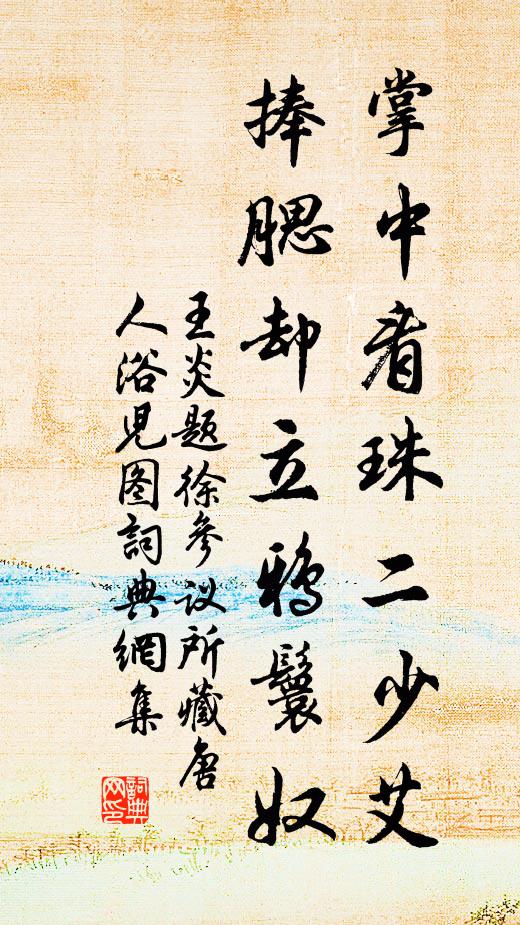 掌中看珠二少艾
捧腮却立鸦鬟奴
王炎题徐参议所藏唐
人浴児图詞典網集
詞典网印